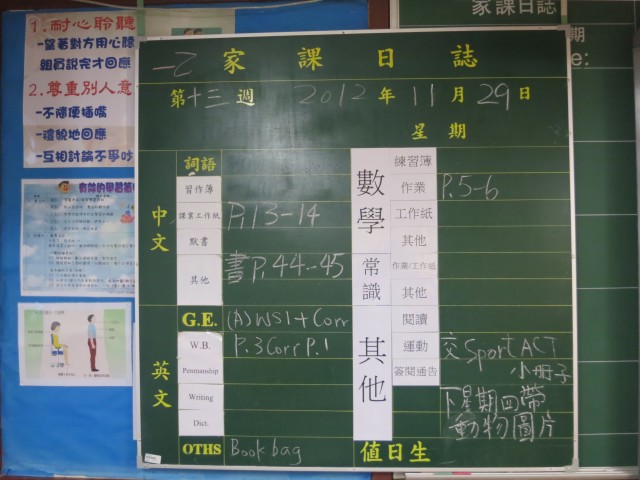 1.耐心聆聽
-望著對方用心聽
組員說完才回應
2.尊重別人意
-不隨便插嘴
-禮貌地回應
-互相討論不爭吵
家課日誌
期
e:
一乙 家課日誌
第十三週 2012年11月29日
星期
中文
詞語
習作簿
課業工作紙 P.13-14
默書
其他 書P.44-45
英文
G.E. (A)WS1+Corr
W.B. P.3Corr P.1
Penmanship
Writing
Dict.
OTHS Book bag
數學
練習簿
作業 P.5-6
工作紙
其他
常識
作業/工作紙
其他
其他
閱讀
運動 交Sport ACT
小冊子
簽閱通告
下星期四帶
動物圖片
值日生